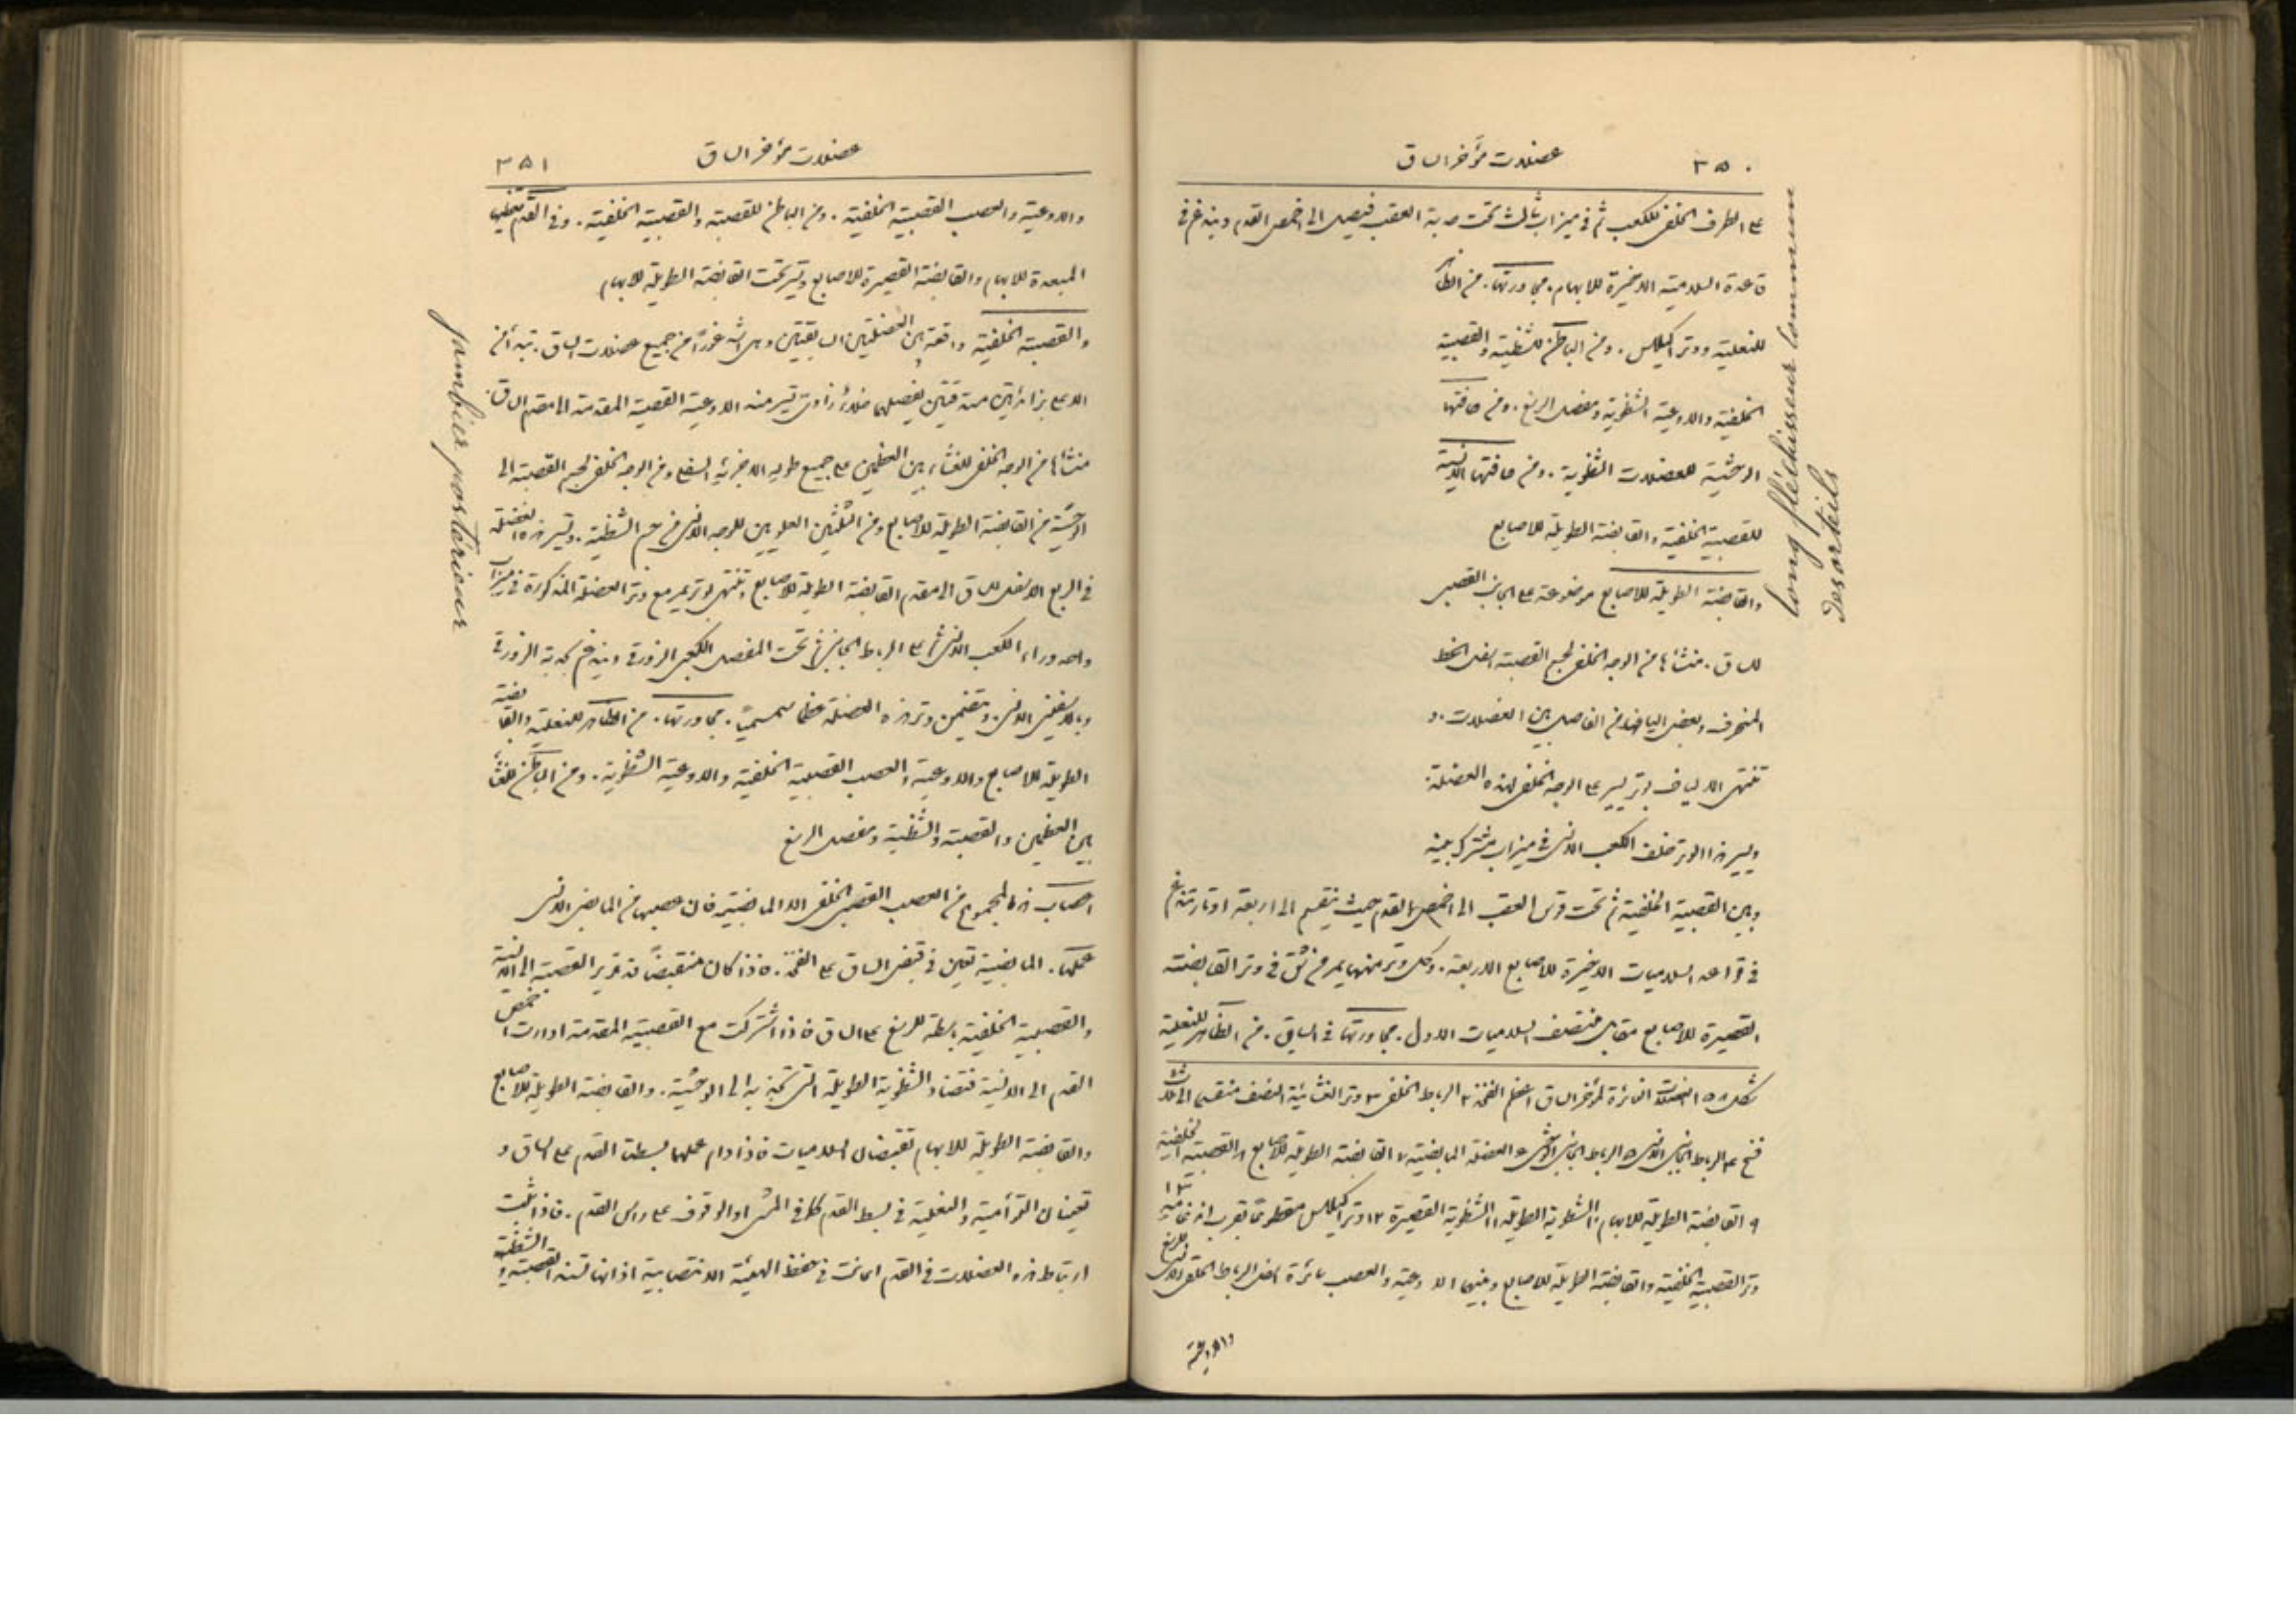 ٣٥٠
عضلات مؤخر الساق
على الطرف الخلفي للكعب ثم في ميزاب ثالث تحت العقب فيصل الى اخمص القدم ويندغم في
قاعدة السلامية الاخيرة للابهام. مجاورتها. من الظاهر
للنعلية ووتر اكيلس. ومن الباطن للشظية والقصبية
الخلفية والاوعية الشظوية ومفصل الرسغ. ومن حافتها
الوحشية للعضلات الشظوية. ومن حافتها الانسية
للقصبية الخلفية والقابضة الطويلة للاصابع
والقابضة الطويلة للاصابع موضوعة على الجانب القصبي
للساق. منشأها من الوجه الخلفي لجسم القصبة اسفل الخط
المنحرف وبعض الياف من الفاصل بين العضلات. و
تنتهي الالياف بوتر يسير على الوجه الخلفي لهذه العضلة.
ويسير هذا الوتر خلف الكعب الانسي في ميزاب مشترك بينه
وبين القصبية الخلفية ثم تحت قوس العقب الى اخمص القدم حيث ينقسم الى اربعة اوتار تندغم
في قواعد السلاميات الاخيرة للاصابع الاربعة. وكل وتر منها يمر من شق في وتر القابضة
القصيرة للاصابع مقابل منتصف السلاميات الاول. مجاورتها في الساق. من الظاهر للنعلية
شكل ١٥٨ العضلات الغائرة لمؤخر الساق ١ عظم الفخذ ٢ الرباط الخلفي ٣ وتر الغشائية النصف منقسم الى ثلاث
٤ الرباط الجانبي الانسي ٥ الرباط الجانبي الوحشي ٦ العضلة المابضية ٧ القابضة الطويلة للاصابع ٨ القصبية الخلفية
٩ القابضة الطويلة للابهام ١٠ الشظوية الطويلة ١١ الشظوية القصيرة ١٢ وتر اكيلس مقطوعًا بقرب اندغامه ١٣
وتر القصبية الخلفية والقابضة الطويلة للاصابع وبينهما الاوعية والعصب سائرة اسفل الرباط الحلقي الانسي للرسغ
والاوعية
long fléchisseur commun
des orteils
عضلات مؤخر الساق
٣٥١
والاوعية والعصب القصبية الخلفية. ومن الباطن للقصبة والقصبية الخلفية. وفي القدم تغطيها
المبعدة للابهام والقابضة القصيرة للاصابع وتسير تحت القابضة الطويلة للابهام
والقصبية الخلفية واقعة بين العضلتين السابقتين وهي اشد غورًا من جميع عضلات الساق. تبدأ من
الاعلى بزائدتين يفصلهما خلاء زاوي تسير منه الاوعية القصبية المقدمة الى مقدم الساق.
منشأها من الوجه الخلفي للغشاء بين العظمين على جميع طوله الا جزئه السفلي ومن الوجه الخلفي لجسم القصبة الى
الوحشية من القابضة الطويلة للاصابع ومن الثلثين العلويين للوجه الانسي من جسم الشظية. وتسير هذه العضلة
في الربع الاسفل للساق الى مقدم القابضة الطويلة للاصابع وتنتهي بوتر يمر مع وتر العضلة المذكورة في ميزاب
واحد وراء الكعب الانسي ثم على الرباط الجانبي ثم تحت المفصل الكعبي الزورقي ويندغم بحدبة الزورقي
وبالاسفيني الانسي. ويتضمن وتر هذه العضلة عظمًا سمسميًا. مجاورتها. من الظاهر للنعلية والقابضة
الطويلة للاصابع والاوعية والعصب القصبية الخلفية والاوعية الشظوية. ومن الباطن للغشاء
بين العظمين والقصبة والشظية ومفصل الرسغ
اعصاب هذا المجموع من العصب القصبي الخلفي الا المابضية فان عصبها من المابضي الانسي
عملها. المابضية تعين في قبض الساق على الفخذ. فاذا كان منقبضًا تدير القصبة الى الانسية
والقصبية الخلفية باسطة للرسغ على الساق فاذا اشتركت مع القصبية المقدمة ادارت اخمص
القدم الى الانسية فتضاد الشظوية الطويلة التي تجذبه الى الوحشية. والقابضة الطويلة للاصابع
والقابضة الطويلة للابهام تقبضان السلاميات فاذا دام عملهما بسطت القدم على الساق و
تعينان التوأمية والنعلية في بسط القدم كما في المشي او الوقوف على راس القدم. فاذا ثبت
ارتباط هذه العضلات في القدم اعانت في حفظ الهيئة الانتصابية اذ انها تسند القصبة والشظية
jambier postérieur